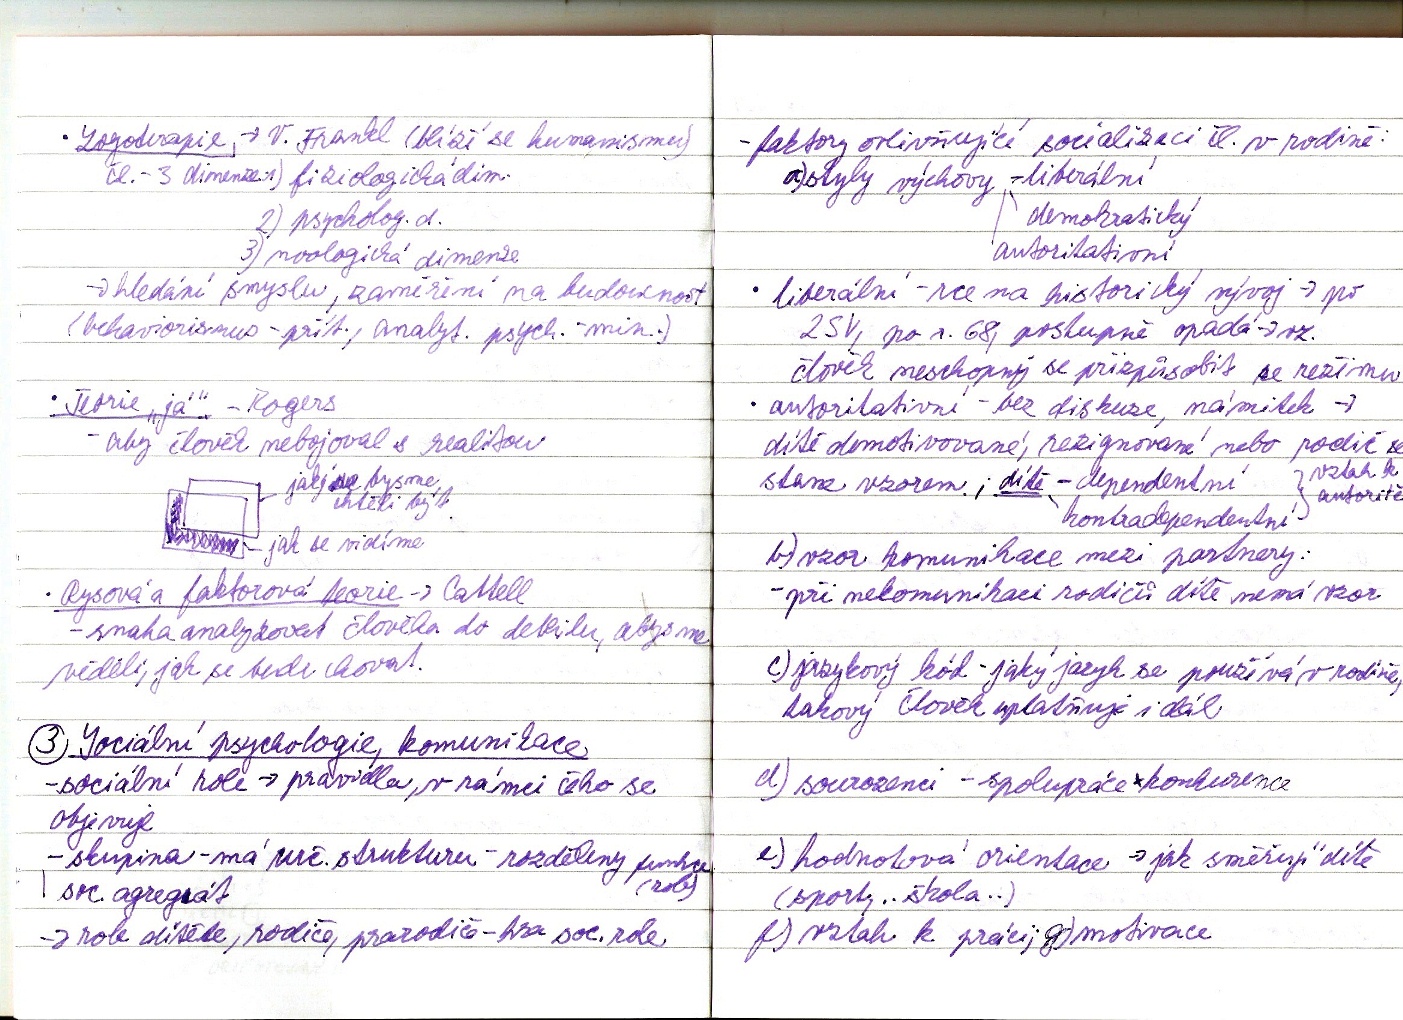 • Logoterapie, → V. Frankl (blíží se humanismu)
čl. - 3 dimenze: 1) fiziologická dim.
2) psycholog. d.
3) noologická dimenze
→ hledání smyslu, zaměření na budoucnost
(behaviorismus - přít., analyt. psych. - min.)
• Teorie „já" - Rogers
- aby člověk nebojoval s realitou
jací bysme,
chtěli být
- jak se vidíme
• Rysová a faktorová teorie → Cattell
- snaha analyzovat člověka do detailu, abysme
věděli, jak se bude chovat.
③ Sociální psychologie, komunikace
- sociální role → pravidla, v rámci čeho se
objevuje
- skupina - má urč. strukturu - rozděleny funkce
(role)
soc. agregát
→ role dítěte, rodiče, prarodiče - hra soc. role
- faktory ovlivňující socializaci čl. v rodině:
a) styly výchovy - liberální
demokratický
autoritativní
• liberální - rce na historický vývoj → po
2SV, po r. 68, postupně opadá → vz.
člověk neschopný se přizpůsobit se režimu
• autoritativní - bez diskuze, námitek →
dítě demotivované, rezignované nebo rodič se
stane vzorem.; dítě - dependentní } vztah k
autoritě
kontradependentní
b) vzor komunikace mezi partnery:
- při nekomunikaci rodičů dítě nemá vzor
c) jazykový kód - jaký jazyk se používá v rodině,
takový člověk uplatňuje i dál
d) sourozenci - spolupráce x konkurence
e) hodnotová orientace → jak směřují dítě
(sporty.. škola..)
f) vztah k práci; g) motivace